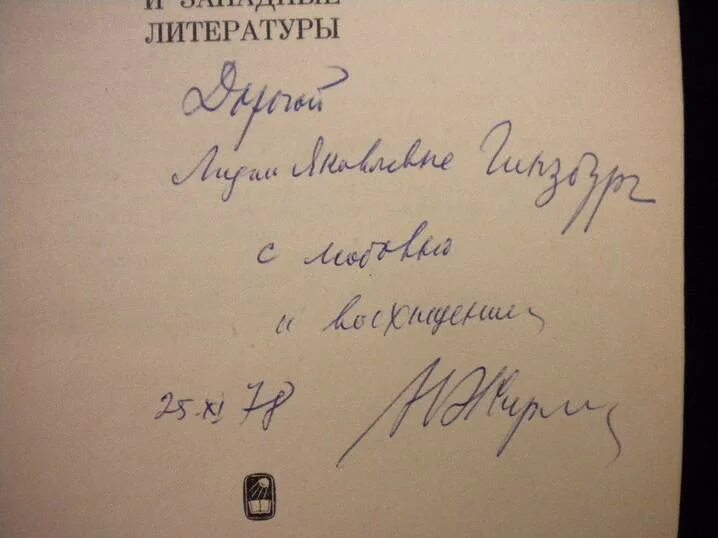 И ЗАПАДНЫЕ
ЛИТЕРАТУРЫ
Дорогой
Лидии Яковлевне Гинзбург
с любовью
и восхищением
25.XI 78